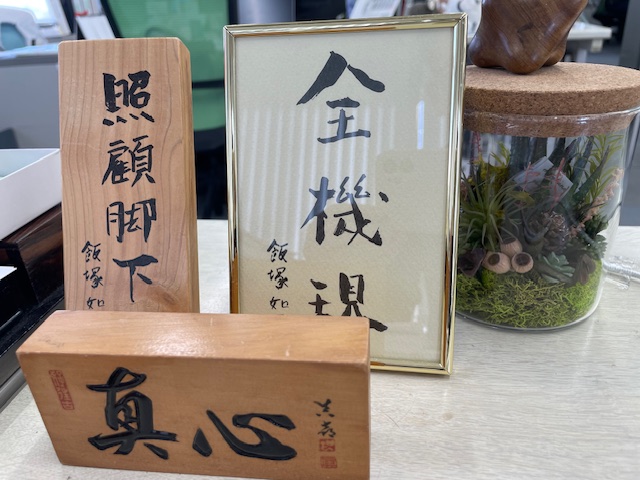 照顧脚下
飯塚如
全機現
飯塚如
真心